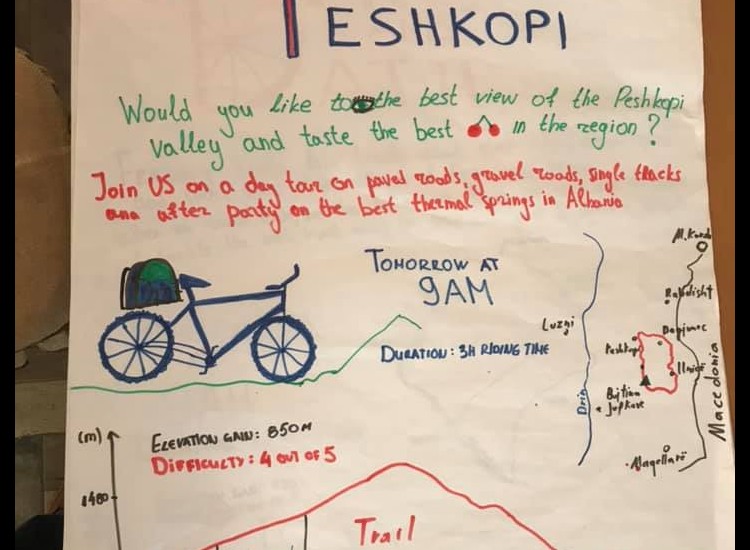 PESHKOPI
Would you like to the best view of the Peshkopi
valley and taste the best in the region?
Join US on a day tour on paved roads, gravel roads, single tracks
and after party on the best thermal springs in Albania
TOMORROW AT
9AM
DURATION: 3H RIDING TIME
M. Korab
Rabdisht
Luzni
Peshkopi
Drin
Macedonia
Magellarë
(m)
ELEVATION GAIN: 850M
DIFFICULTY: 4 OUT OF 5
1400
Trail